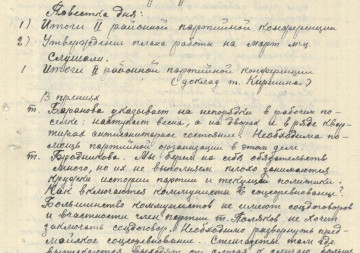 Повестка дня:
1) Итоги II районной партийной конференции
2) Утверждение плана работы на март м-ц.
Слушали.
1 Итоги II районной партийной конференции
(доклад т. Киршина)
В прениях
т. Баранова указывает на непорядки в рабочем по-
селке: наступает весна, а на дворах и в ряде квар-
тирах антисанитарное состояние. Необходима по-
мощь партийной организации в этом деле.
т. Бродникова. Мы берем на себя обязательств
много, но их не выполняем плохо занимаются
кружки истории партии и текущей политики.
Как включаются коммунисты в соцсоревнование?
Большинство коммунистов не имеют соцдоговоров
и в частности член партии т. Поляков не хочет
заключать соцдоговор. Необходимо развернуть пред-
майское соцсоревнование. Стенгазеты там где
выпускаются выходят от случая к случаю больше